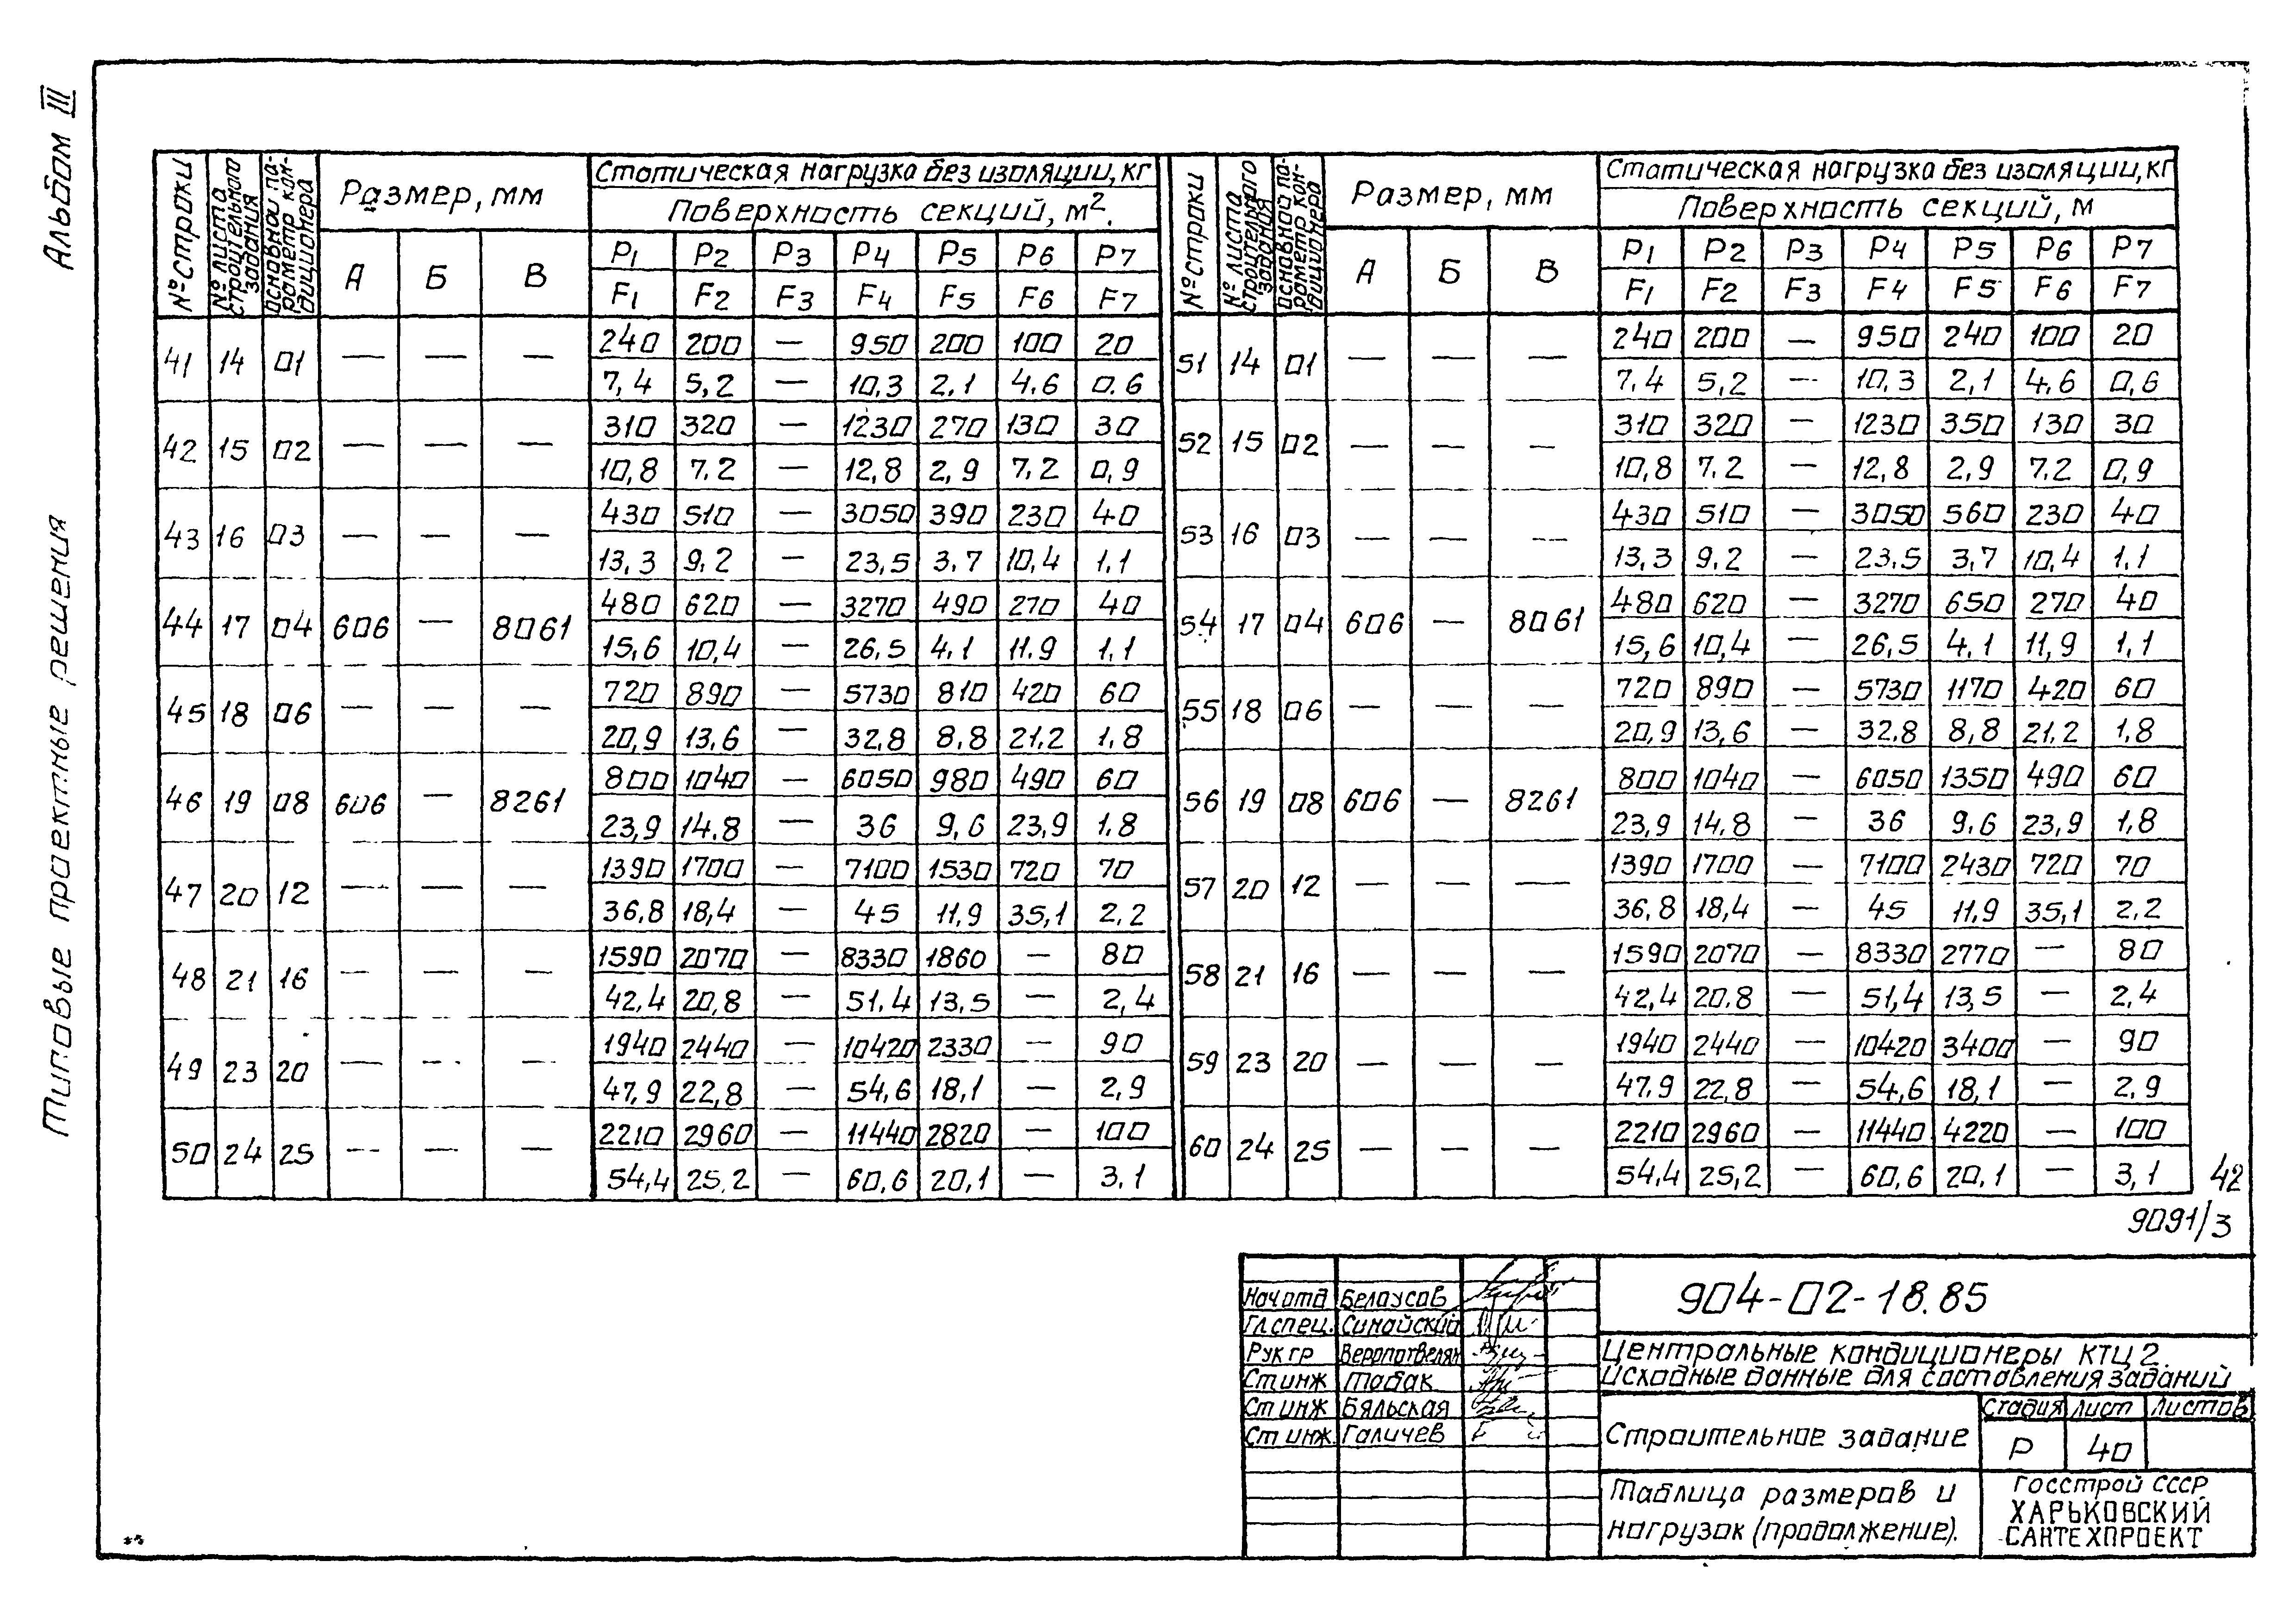 Альбом III
Типовые проектные решения
№ строки | № листа строительного задания | Основной параметр кондиционера | Размер, мм | Статическая нагрузка без изоляции, кг
Поверхность секций, м².
А | Б | В | P1 | P2 | P3 | P4 | P5 | P6 | P7
F1 | F2 | F3 | F4 | F5 | F6 | F7
41 | 14 | 01 | — | — | — | 240 | 200 | — | 950 | 200 | 100 | 20
7,4 | 5,2 | — | 10,3 | 2,1 | 4,6 | 0.6
42 | 15 | 02 | — | — | — | 310 | 320 | — | 1230 | 270 | 130 | 30
10,8 | 7.2 | — | 12,8 | 2,9 | 7,2 | 0,9
43 | 16 | 03 | — | — | — | 430 | 510 | — | 3050 | 390 | 230 | 40
13,3 | 9,2 | — | 23,5 | 3,7 | 10,4 | 1,1
44 | 17 | 04 | 606 | — | 8061 | 480 | 620 | — | 3270 | 490 | 270 | 40
15,6 | 10,4 | — | 26,5 | 4,1 | 11.9 | 1,1
45 | 18 | 06 | — | — | — | 720 | 890 | — | 5730 | 810 | 420 | 60
20,9 | 13,6 | — | 32,8 | 8,8 | 21,2 | 1,8
46 | 19 | 08 | 606 | — | 8261 | 800 | 1040 | — | 6050 | 980 | 490 | 60
23,9 | 14.8 | — | 36 | 9,6 | 23,9 | 1.8
47 | 20 | 12 | — | — | — | 1390 | 1700 | — | 7100 | 1530 | 720 | 70
36,8 | 18,4 | — | 45 | 11,9 | 35,1 | 2,2
48 | 21 | 16 | — | — | — | 1590 | 2070 | — | 8330 | 1860 | — | 80
42,4 | 20,8 | — | 51.4 | 13,5 | — | 2,4
49 | 23 | 20 | — | — | — | 1940 | 2440 | — | 10420 | 2330 | — | 90
47,9 | 22,8 | — | 54,6 | 18,1 | — | 2,9
50 | 24 | 25 | — | — | — | 2210 | 2960 | — | 11440 | 2820 | — | 100
54,4 | 25,2 | — | 60,6 | 20,1 | — | 3,1
№ строки | № листа строительного задания | Основной параметр кондиционера | Размер, мм | Статическая нагрузка без изоляции, кг
Поверхность секций, м
А | Б | В | P1 | P2 | P3 | P4 | P5 | P6 | P7
F1 | F2 | F3 | F4 | F5 | F6 | F7
51 | 14 | 01 | — | — | — | 240 | 200 | — | 950 | 240 | 100 | 20
7.4 | 5,2 | — | 10,3 | 2,1 | 4,6 | 0,6
52 | 15 | 02 | — | — | — | 310 | 320 | — | 1230 | 350 | 130 | 30
10,8 | 7.2 | — | 12,8 | 2,9 | 7.2 | 0,9
53 | 16 | 03 | — | — | — | 430 | 510 | — | 3050 | 560 | 230 | 40
13,3 | 9,2 | — | 23.5 | 3,7 | 10,4 | 1,1
54 | 17 | 04 | 606 | — | 8061 | 480 | 620 | — | 3270 | 650 | 270 | 40
15,6 | 10,4 | — | 26,5 | 4,1 | 11,9 | 1,1
55 | 18 | 06 | — | — | — | 720 | 890 | — | 5730 | 1170 | 420 | 60
20,9 | 13,6 | — | 32.8 | 8,8 | 21,2 | 1,8
56 | 19 | 08 | 606 | — | 8261 | 800 | 1040 | — | 6050 | 1350 | 490 | 60
23,9 | 14,8 | — | 36 | 9.6 | 23,9 | 1,8
57 | 20 | 12 | — | — | — | 1390 | 1700 | — | 7100 | 2430 | 720 | 70
36,8 | 18,4 | — | 45 | 11.9 | 35,1 | 2,2
58 | 21 | 16 | — | — | — | 1590 | 2070 | — | 8330 | 2770 | — | 80
42,4 | 20.8 | — | 51,4 | 13,5 | — | 2,4
59 | 23 | 20 | — | — | — | 1940 | 2440 | — | 10420 | 3400 | — | 90
47.9 | 22.8 | — | 54,6 | 18,1 | — | 2,9
60 | 24 | 25 | — | — | — | 2210 | 2960 | — | 11440 | 4220 | — | 100
54,4 | 25,2 | — | 60,6 | 20,1 | — | 3,1
42
9091/3
Нач отд Белоусов
Гл спец. Синайский
Рук гр
Ст инж Табак
Ст инж Бяльская
Ст инж. Галичев
904-02-18.85
Центральные кондиционеры КТЦ 2.
Исходные данные для составления заданий
Строительное задание
Стадия Лист Листов
Р 40
Таблица размеров и
нагрузок (продолжение).
Госстрой СССР
ХАРЬКОВСКИЙ
САНТЕХПРОЕКТ